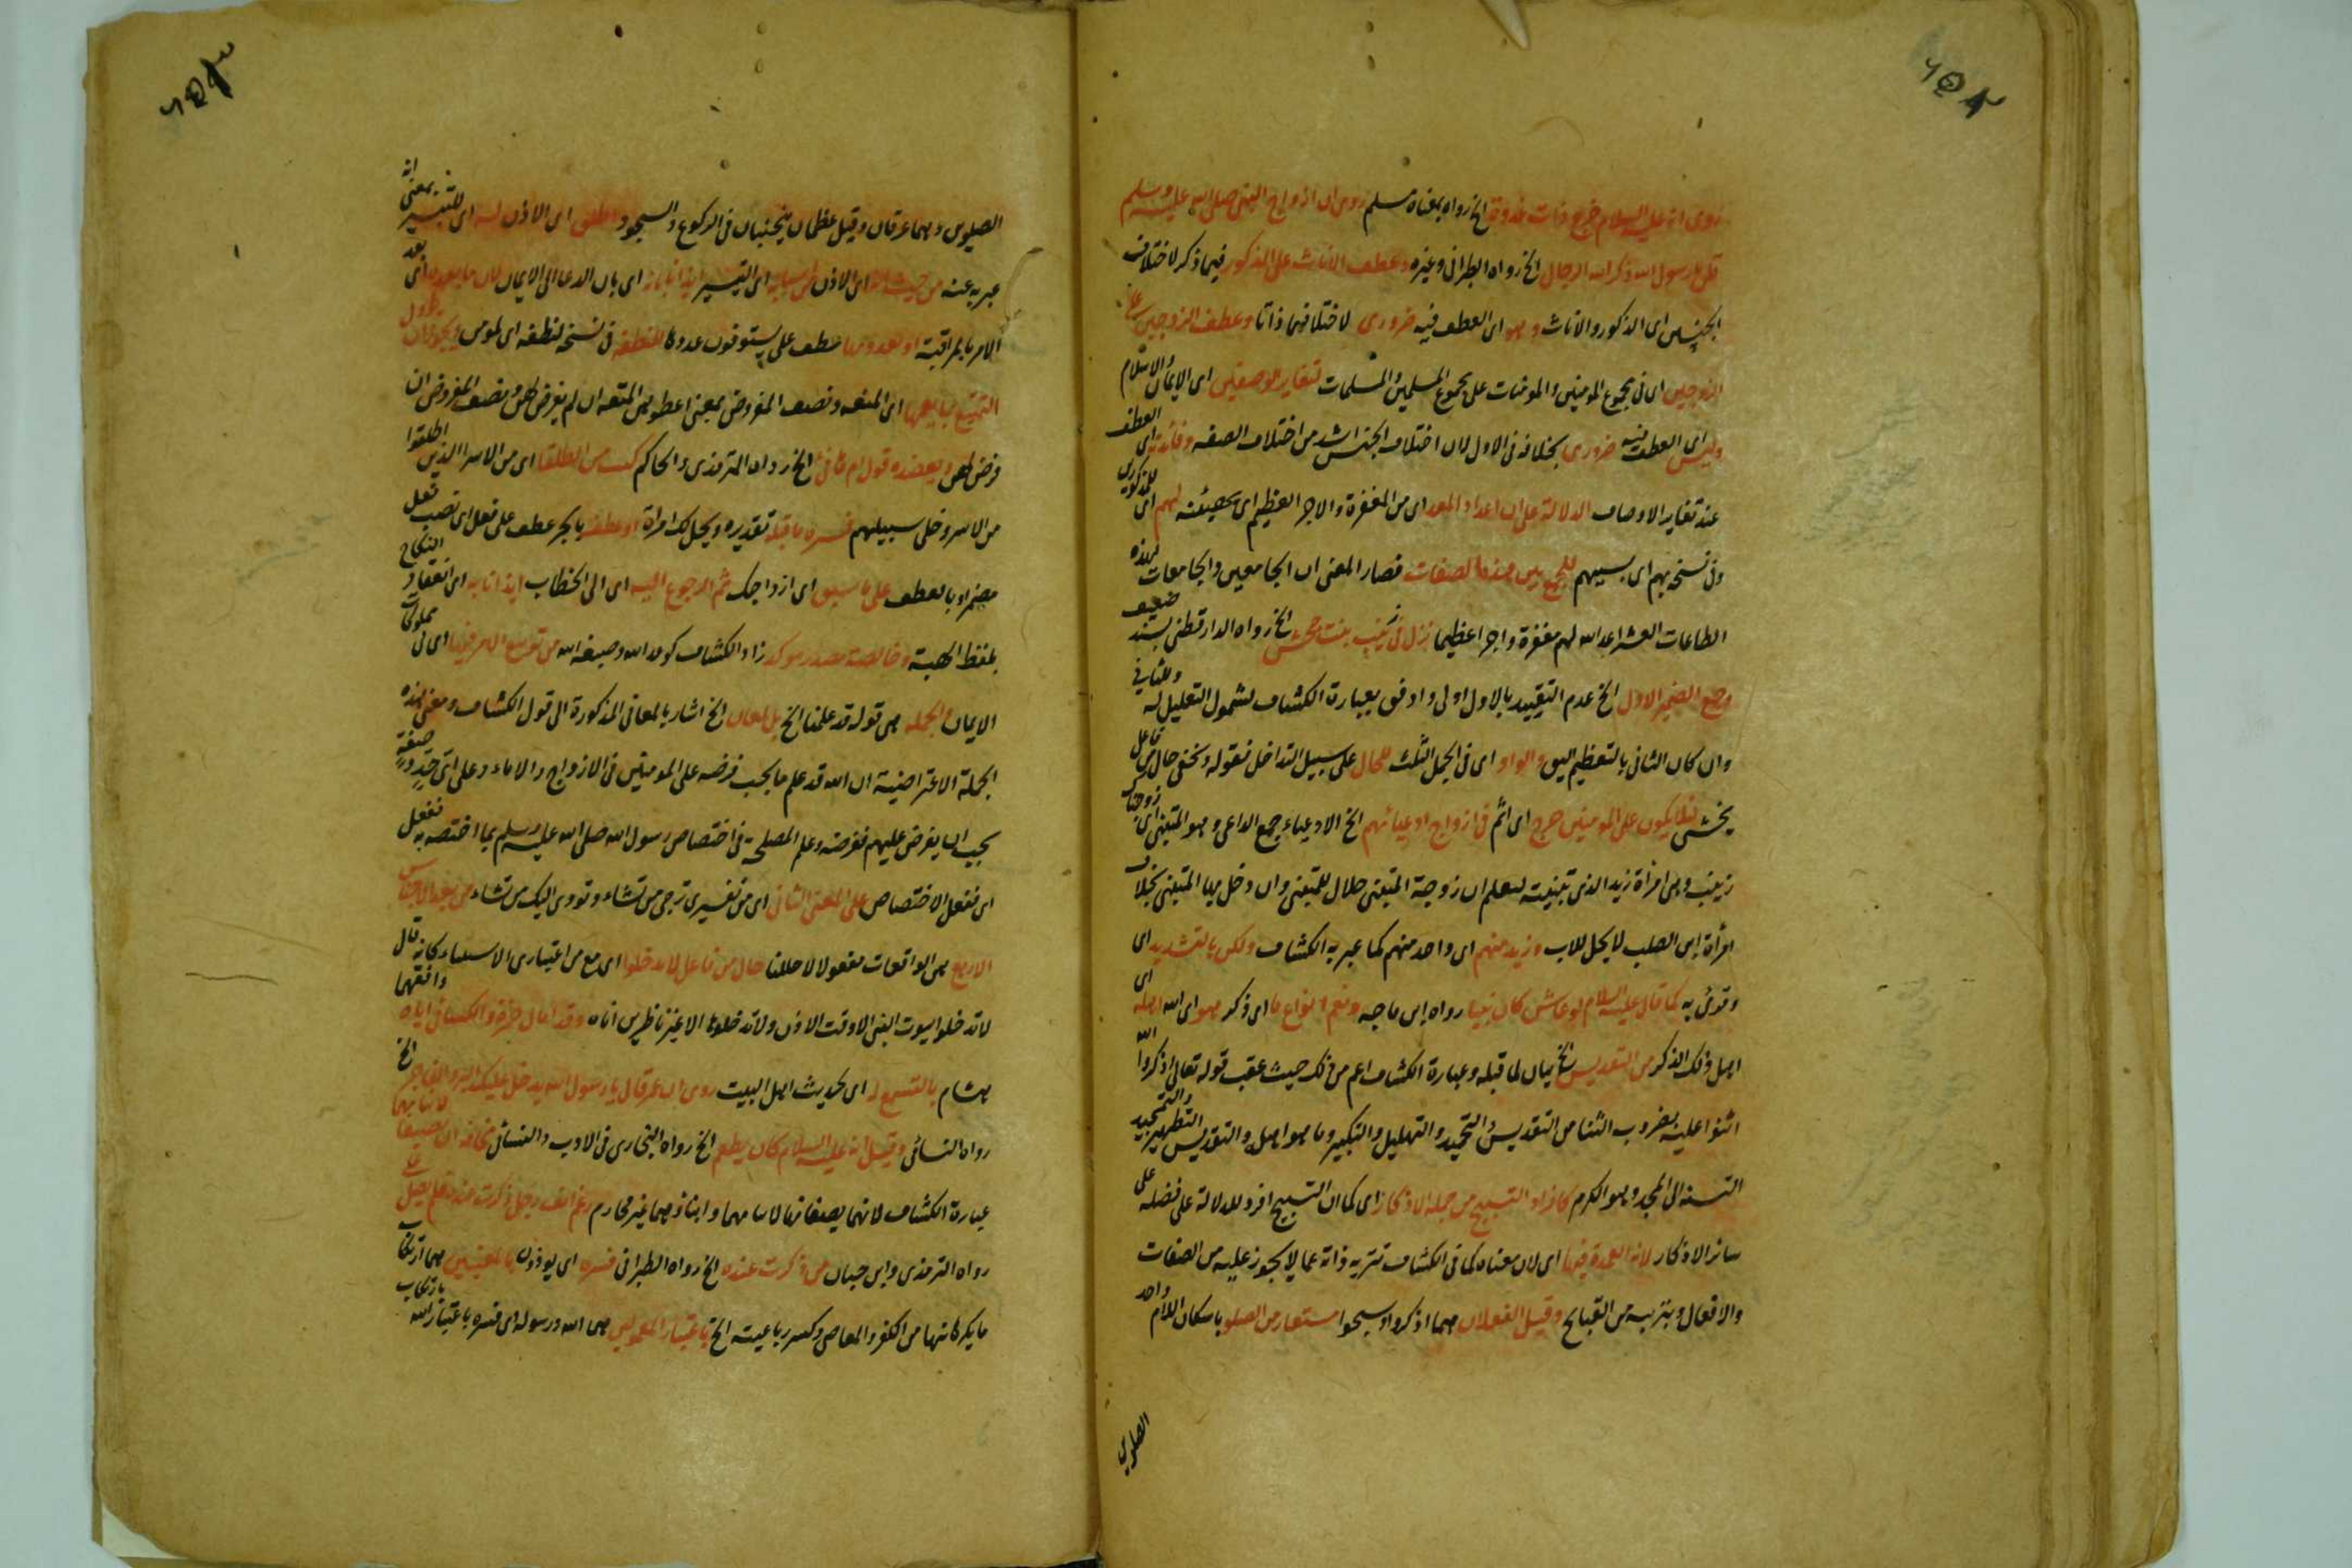 روى انه عليه السلام خرج ذات غدوة الخ رواه بمعناه مسلم روى ان ازواج النبى صلى الله عليه وسلم
قلن يا رسول الله ذكر الله الرجال الخ رواه الطبرانى وغيره وعطف الاناث على الذكور فيما ذكر لاختلاف
الجنسين اى الذكور والاناث وهو اى العطف فيه ضرورى لاختلافهما ذاتا وعطف الزوجين على
الزوجين اى فى مجموع المومنين والمومنات على مجموع المسلمين والمسلمات لتغاير الوصفين اى الايمان والاسلام
وليس اى العطف فيه ضرورى بخلافه فى الاول لان اختلاف الجنس اشد من اختلاف الصفة وفائدته اى العطف
عند تغاير الاوصاف الدلالة على ان اعداد المعد اى من المغفرة والاجر العظيم اى تهيئته لهم اى للمذكورين
وفى نسخة بهم اى بسببهم للجمع بين هذه الصفات فصار المعنى ان الجامعين والجامعات لهذه
الطاعات العشر اعد الله لهم مغفرة واجرا عظيما نزل فى زينب بنت جحش الخ رواه الدارقطنى بسند ضعيف
وجمع الضمير الاول الخ عدم التقييد بالاول اولى واوفق بعبارة الكشاف لشمول التعليل له وللثانى
وان كان الثانى بالتعظيم اليق والواو اى فى الجمل الثلث للحال على سبيل التداخل فقوله وتخفى حال من فاعل
تخشى لئلا يكون على المومنين حرج اى اثم فى ازواج ادعيائهم الخ الادعياء جمع الداعى وهو المتبنى اى زوجناك
زينب وهى امراة زيد الذى تبنيته ليعلم ان زوجة المتبنى حلال للمتبنى وان دخل بها المتبنى بخلاف
امرأة ابن الصلب لا يحل للاب وزيد منهم اى واحد منهم كما عبر به الكشاف ولكن بالتشديد اى
وقرئ به كما قال عليه السلام لو عاش كان نبيا رواه ابن ماجه ونعم انواع ما اى ذكر هو اى الله اهله اى
اهل ذلك الذكر من التقديس الخ بيان لما قبله وعبارة الكشاف اعم من ذلك حيث عقب قوله تعالى اذكروا الله
اثنوا عليه بضروب الثنا من التقديس والتحميد والتهليل والتكبير وما هو اهله والتقديس التطهير والتمجيد
النسبة الى المجد وهو الكرم كافراد التسبيح من جملة الاذكار اى كما ان التسبيح افرد للدلالة على فضله على
سائر الاذكار لانه العمدة فيها اى لان معناه كما فى الكشاف تنزيه ذاته عما لا يجوز عليه من الصفات
والافعال وتبرئته من القبائح وقيل الفعلان هما اذكروا وسبحوا مستعار من الصلو باسكان اللام واحد
الصلوين
الصلوين وهما عرقان وقيل عظمان ينحنيان فى الركوع والسجود اطلق اى الاذن له اى للتيسير بمعنى انه
عبر به عنه من حيث انه اى الاذن من اسبابه اى التيسير ايذانا بانه اى بان الدعا الى الايمان لان ما بعده اى بعد
الامر بالمراقبة او تعدونها عطف على يستوفون عددها للنطفة فى نسخة لنطفه اى لمومن ويجوز ان يأول
التمتيع بما يعمها اى المتعه ونصف المفروض بمعنى اعطوهن المتعه ان لم يفرض لهن ونصف المفروض ان
فرض لهن ويعضده قول ام هانئ الخ رواه الترمذى والحاكم كنت من الطلقا اى من الاسرا الذين اطلقوا
من الاسر وخلى سبيلهم فسره ما قبله تقديره ويحل لك امراة او عطف بالجر عطف على فعل اى نصب بفعل
مضمر او بالعطف على ما سبق اى ازواجك ثم الرجوع اليه اى الى الخطاب ايذانا به اى انعقاد النكاح
بلفظ الهبة وخالصة مصدر موكد زاد الكشاف كوعد الله وصبغة الله من توسيع الامر فيها اى فى مملوكات
الايمان والجملة هى قوله قد علمنا الخ بل لمعان الخ اشار بالمعانى المذكورة الى قول الكشاف ومعنى هذه
الجملة الاعتراضية ان الله قد علم ما يجب فرضه على المومنين فى الازواج والاماء وعلى اى حد وصفة
يجب ان يفرض عليهم ففرضه وعلم المصلحة فى اختصاص رسول الله صلى الله عليه وسلم بما اختصه به ففعل
اى ففعل الاختصاص على المعنى الثانى اى من تفسيرى ترجى من تشاء وتووى اليك من تشاء من بعد الاجناس
الاربع هى الواقعات مفعولا لاحللنا حال من فاعل لا تدخلوا اى مع من اعتبارى الاستثناء كانه قال
لا تدخلوا بيوت النبى الا وقت الاذن ولا تدخلوها الا غير ناظرين اناه وقد امال حمزة والكسائى اناه وافقهما
هشام بالتسمع له اى لحديث اهل البيت روى ان عمر قال يا رسول الله يدخل عليك البر والفاجر الخ
رواه النسائى وقيل انه عليه السلام كان يطعم الخ رواه البخارى فى الادب والنسائى مخافة ان يصفا لابنائهما
عبارة الكشاف لانهما يصفانها لابنائهما وابناؤهما غير محارم رغم انف رجل ذكرت عنده فلم يصل على
رواه الترمذى وابن حبان من ذكرت عنده الخ رواه الطبرانى فسره اى يوذون بالمعنيين هما ارتكاب
ما يكرهانها من الكفر والمعاصى وكسر رباعيته الخ باعتبار المعمولين هما الله ورسوله اى فسره باعتبار الله بارتكاب